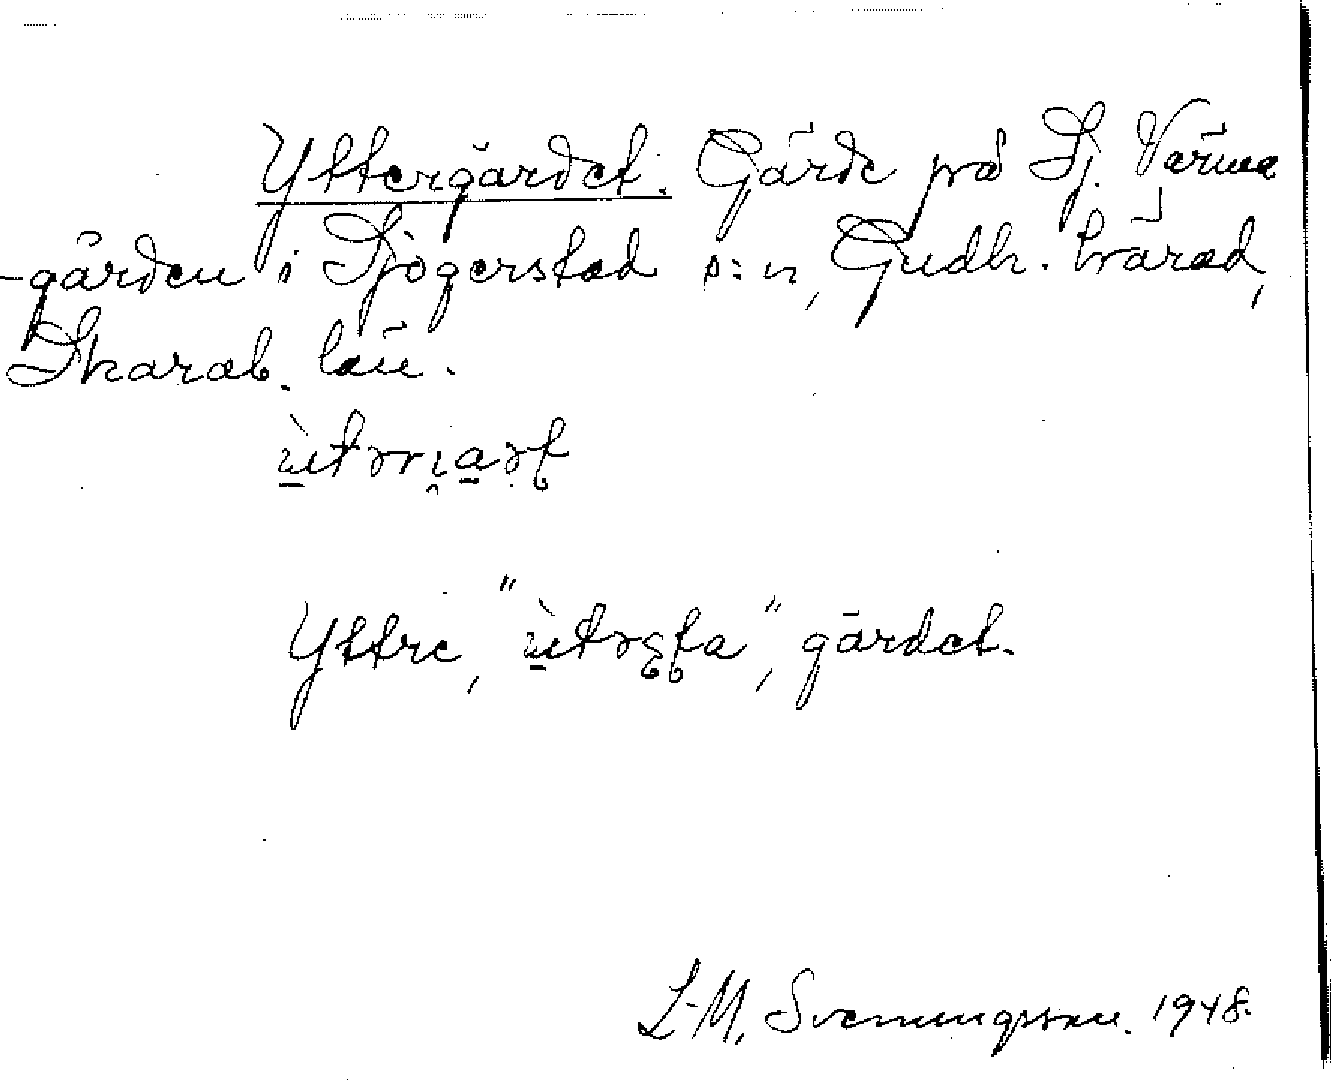 Yttergärdet. Gärde på Sj. Värma
-gården i Sjögerstad s:n, Gudh. härad,
Skarab. län.
Yttre, " ", gärdet.
L-M. Svenungsson. 1948.